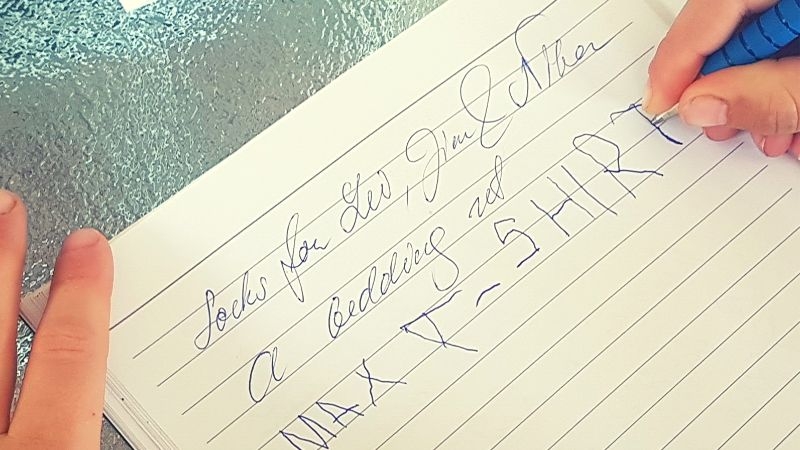 Socks for Leo, Jim &
a bedding set
MAX T-SHIRT